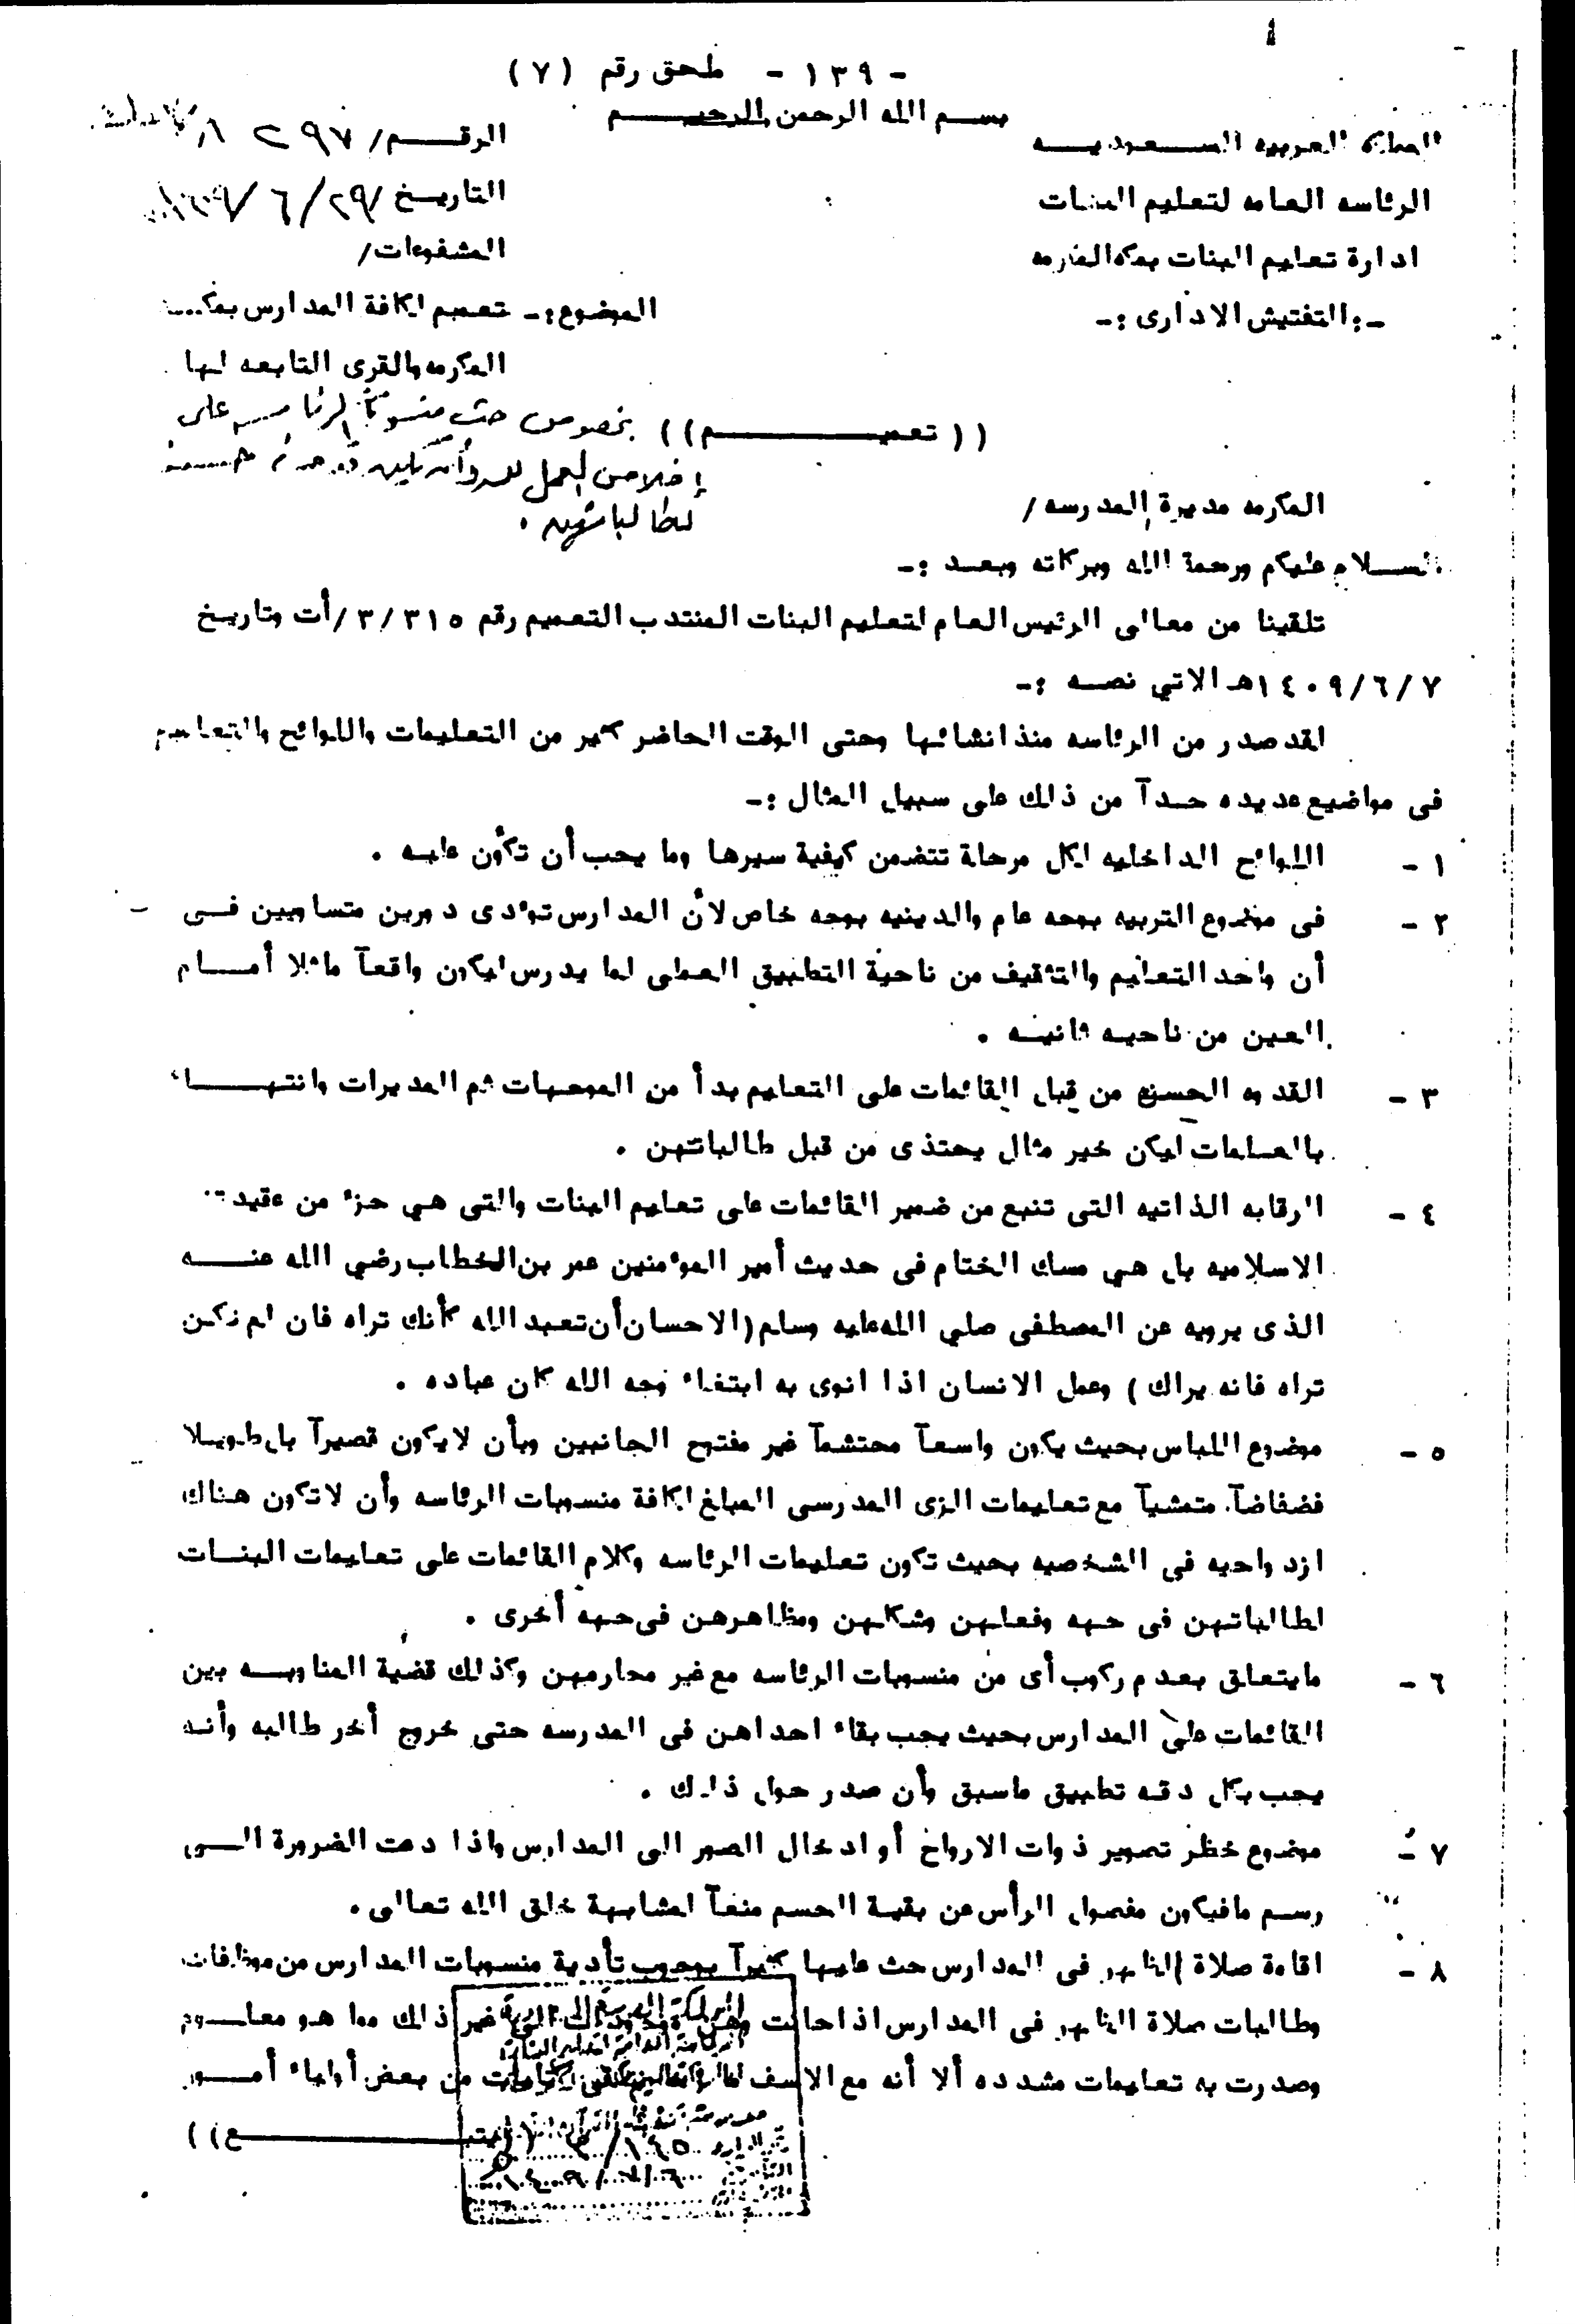 - ١٣٩ - ملحق رقم (٧)
بسم الله الرحمن الرحيم
المملكة العربيه السعوديه
الرقم/ ٢٩٧
الرئاسه العامه لتعليم البنات
التاريخ ٢٩/٦/
ادارة تعليم البنات بمكه المكرمه
المشفوعات/
-: التفتيش الادارى :-
الموضوع :- تعميم لكافة المدارس بمكه
المكرمه والقرى التابعه لها
(( تعميم )) بخصوص حث على
إخلاص العمل
لطالباتهن .
المكرمه مديرة المدرسه /
السلام عليكم ورحمة الله وبركاته وبعد :-
تلقينا من معالى الرئيس العام لتعليم البنات المنتدب التعميم رقم ٣/٣١٥/أت وتاريخ
١٤٠٩/٦/٧هـ الاتي نصه :-
لقد صدر من الرئاسه منذ انشائها وحتى الوقت الحاضر كثير من التعليمات واللوائح والتعاميم
فى مواضيع عديده جدآ من ذلك على سبيل المثال :-
١ - اللوائح الداخليه لكل مرحلة تتضمن كيفية سيرها وما يجب أن تكون عليه .
٢ - فى موضوع التربيه بوجه عام والدينيه بوجه خاص لأن المدارس تؤدى دورين متساويين فى
أن واحد التعليم والتثقيف من ناحية التطبيق العملى لما يدرس ليكون واقعآ ماثلا أمام
العين من ناحيه ثانيه .
٣ - القدوه الحسنه من قبل القائمات على التعليم بدأ من الموجهات ثم المديرات وانتهاء
بالمعلمات ليكن خير مثال يحتذى من قبل طالباتهن .
٤ - الرقابه الذاتيه التى تنبع من ضمير القائمات على تعليم البنات والتى هي جزء من عقيدتنا
الاسلاميه بل هي مسك الختام فى حديث أمير المؤمنين عمر بن الخطاب رضي الله عنه
الذى يرويه عن المصطفى صلي الله عليه وسلم (الاحسان أن تعبد الله كأنك تراه فان لم تكن
تراه فانه يراك ) وعمل الانسان اذا انوى به ابتغاء وجه الله كان عباده .
٥ - موضوع اللباس بحيث يكون واسعآ محتشمآ غير مفتوح الجانبين وبأن لا يكون قصيرآ بل طويلا
فضفاضآ متمشيآ مع تعليمات الزى المدرسى المبلغ لكافة منسوبات الرئاسه وأن لا تكون هناك
ازدواجيه فى الشخصيه بحيث تكون تعليمات الرئاسه وكلام القائمات على تعليمات البنات
لطالباتهن فى جهه وفعلهن وشكلهن ومظاهرهن فى جهه أخرى .
٦ - مايتعلق بعدم ركوب أى من منسوبات الرئاسه مع غير محارمهن وكذلك قضية المناوبه بين
القائمات على المدارس بحيث يجب بقاء احداهن فى المدرسه حتى خروج أخر طالبه وأنه
يجب بكل دقه تطبيق ماسبق وأن صدر حول ذلك .
٧ - موضوع حظر تصوير ذوات الارواح أو ادخال الصور الى المدارس واذا دعت الضرورة الى
رسم مافيكون مفصول الرأس عن بقية الجسم منعآ لمشابهة خلق الله تعالى .
٨ - اقامة صلاة الظهر فى المدارس حث عليها كثيرآ بوجوب تأدية منسوبات المدارس من موظفات
وطالبات صلاة الظهر فى المدارس اذا حانت وهن غير ذلك مما هو معلوم
وصدرت به تعليمات مشدده ألا أنه مع الاسف من بعض أولياء أمور
(( يتبع ))
١٩٥
١٤٠٩